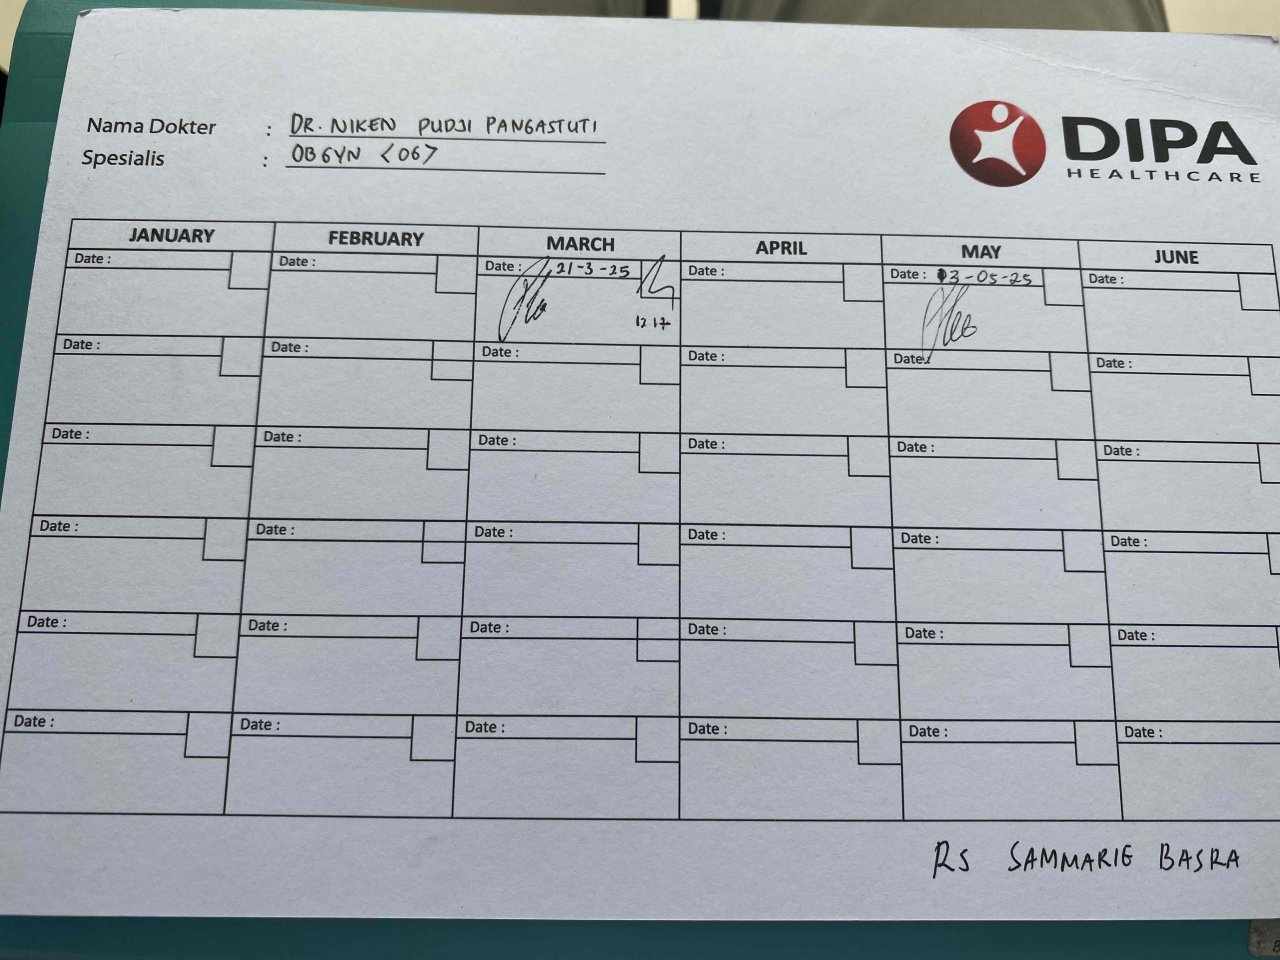 Nama Dokter : DR. NIKEN PUDJI PANGASTUTI
Spesialis : OBGYN <06>
DIPA
HEALTHCARE
JANUARY FEBRUARY MARCH APRIL MAY JUNE
Date : Date : Date : 21-3-25 Date : Date : 03-05-25 Date :
12 17
Date : Date : Date : Date : Date : Date :
Date : Date : Date : Date : Date : Date :
Date : Date : Date : Date : Date : Date :
Date : Date : Date : Date : Date : Date :
Date : Date : Date : Date : Date : Date :
RS SAMMARIE BASRA